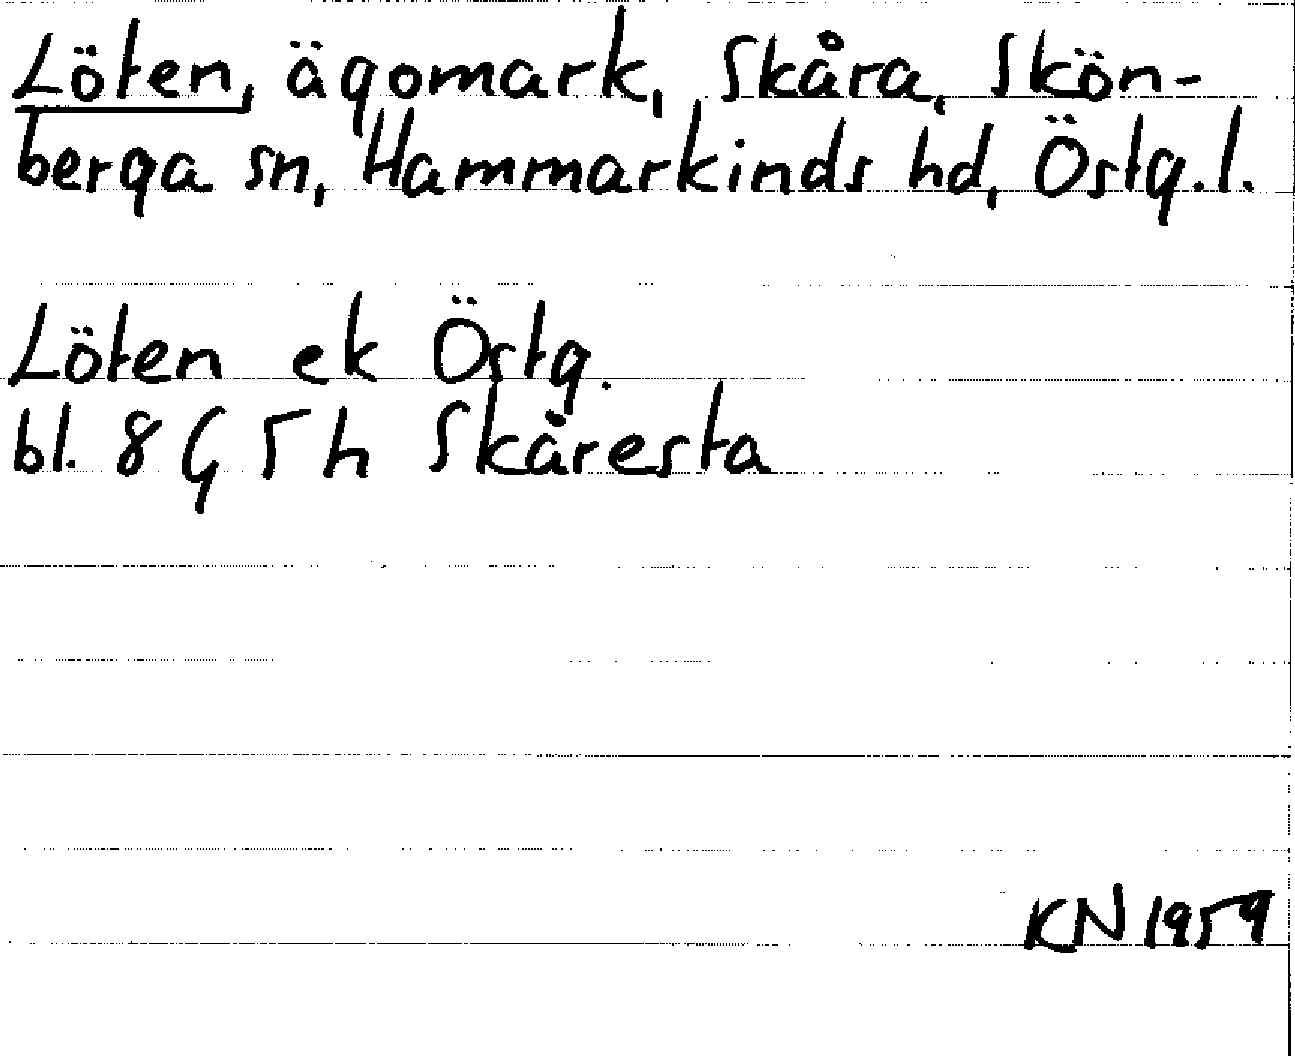 Löten, ägomark, Skåra, Skön-
berga sn, Hammarkinds hd, Östg.l.
Löten ek Östg.
bl. 8 G 5 h Skåresta
KN 1959